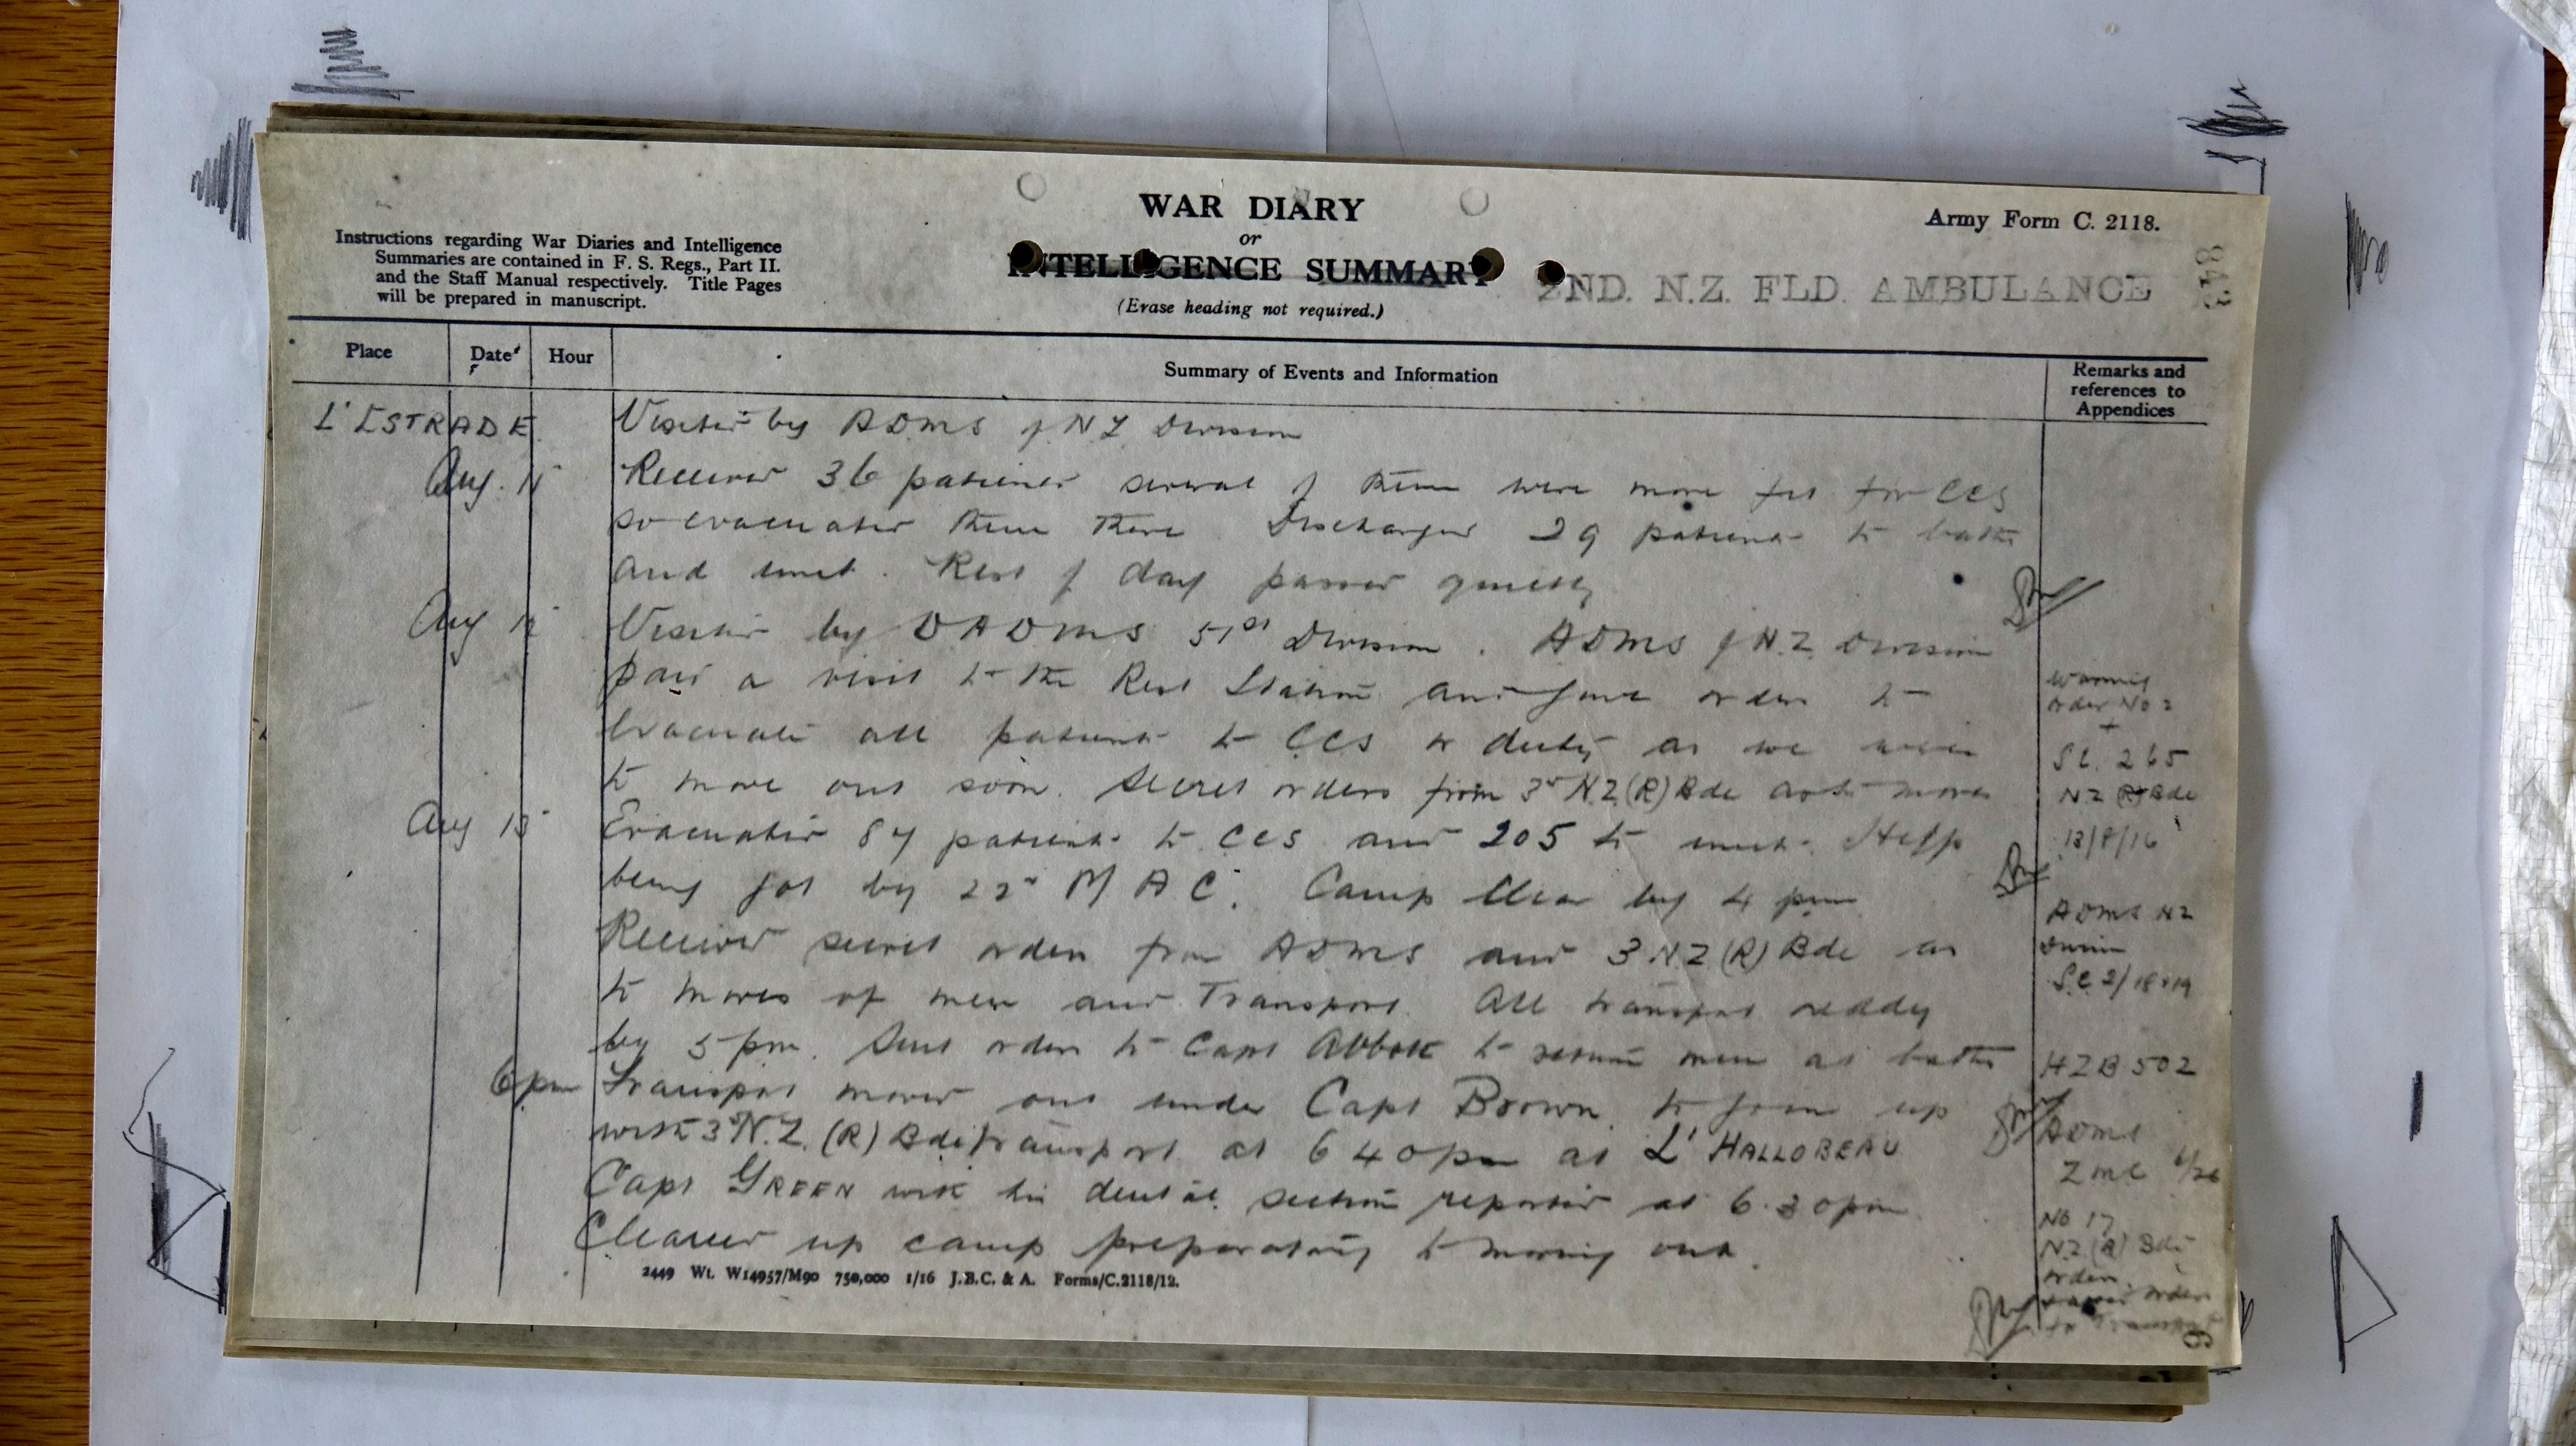 WAR DIARY
or
INTELLIGENCE SUMMARY
(Erase heading not required.)
Instructions regarding War Diaries and Intelligence
Summaries are contained in F. S. Regs., Part II.
and the Staff Manual respectively. Title Pages
will be prepared in manuscript.
Army Form C. 2118.
2ND. N.Z. FLD. AMBULANCE
843
Place
Date
Hour
Summary of Events and Information
Remarks and
references to
Appendices
L'ESTRADE
Visited by ADMS of NZ Division
Aug. 11
Received 36 patients several of them were more fit for CCS
so evacuated them there. Discharged 29 patients to baths
and unit. Rest of day passed quietly
Aug 12
Visited by DADMS 51st Division. ADMS of N.Z. Division
paid a visit to the Rest Station and gave orders to
evacuate all patients to CCS or duty as we were
to move out soon. Secret orders from 3rd N.Z.(R) Bde as to moves
Aug 13
Evacuated 87 patients to CCS and 205 to units. Help
being got by 22nd M A C. Camp clear by 4 pm
Received secret orders from ADMS and 3 N.Z.(R) Bde as
to moves of men and Transport. All transport ready
by 5 pm. Sent orders to Capt Abbott to return men at baths
6 pm
Transport moved out under Capt Brown to form up
with 3rd N.Z. (R) Bde transport at 6 40 pm at L'HALLOBEAU
Capt GREEN with his dental section reported at 6.30 pm
Cleaned up camp preparatory to moving out.
Warning
order No 2
+
S.C. 265
NZ (R) Bde
13/8/16
ADMS NZ
Division
S.C. 2/18+19
HZB 502
ADMS
No 17
N.Z (R) Bde
orders
orders
to Transport
2449 Wt. W14957/M90 750,000 1/16 J.B.C. & A. Forms/C.2118/12.